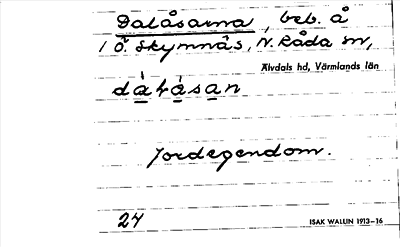 Dalåsarna, beb. å
1 Ö. Skymnäs, N. Råda sn,
Älvdals hd, Värmlands län
Jordegendom.
24 ISAK WALLIN 1913-16